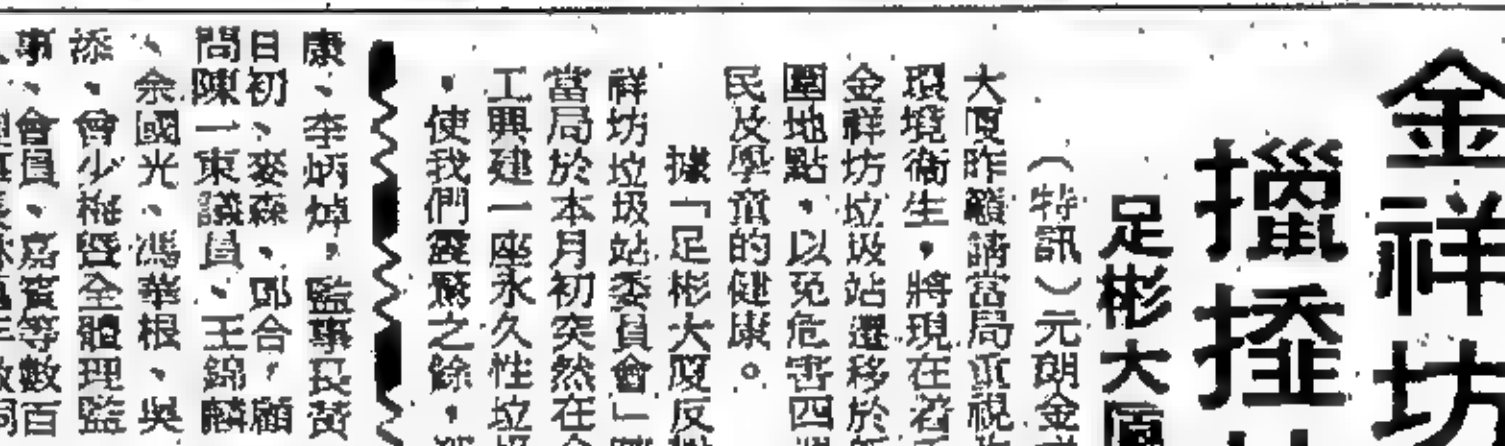 金祥坊
擸𢶍
足彬大厦
（特訊）元朗金祥
大厦昨籲請當局重視
環境衞生，將現在
金祥坊垃圾站遷移於
圍地點，以免危害四
民及學童的健康。
據「足彬大厦反
祥坊垃圾站委員會」
當局於本月初突然在
工興建一座永久性垃圾
，使我們震驚之餘，
康、李炳焯，監事長黃
日初、麥森、鄧合，顧
問陳一東議員、王錦麟
、余國光、馮華根、吳
添、曾少梅暨全體理監
事、會員、嘉賓等數百